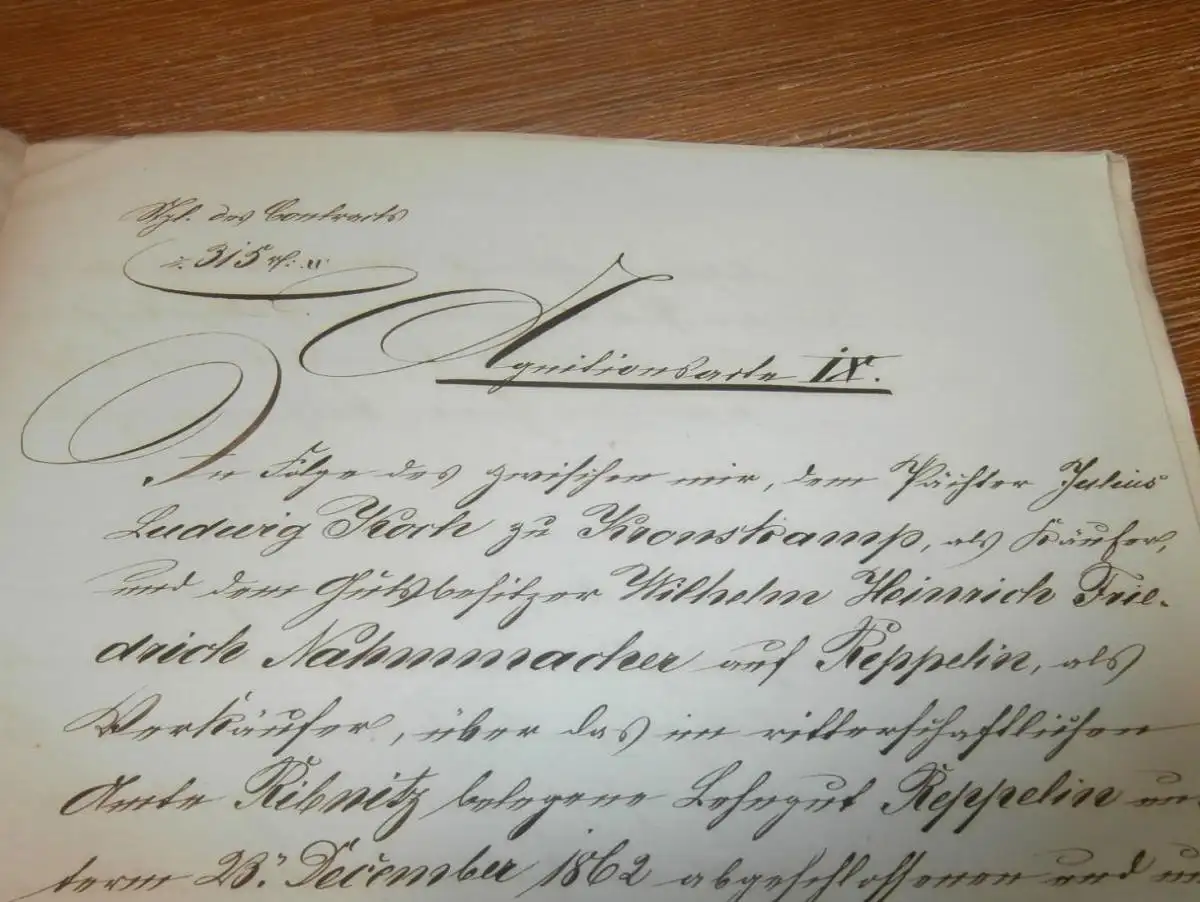 Stpl. des Contracts
315 rf.
Agnitionsacte IX.
In Folge des zwischen mir, dem Pächter Julius
Ludwig Koch zu Kronskamp, als Käufer,
und dem Gutsbesitzer Wilhelm Heinrich Frie-
drich Nahmmacher auf Reppelin, als
Verkäufer, über das im ritterschaftlichen
Amte Ribnitz belegene Lehngut Reppelin un
term 23. December 1862 abgeschlossenen und